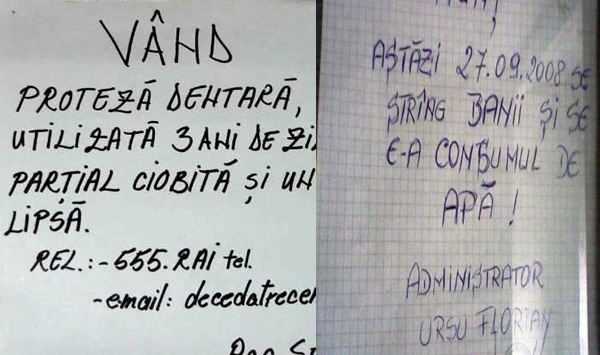 VÂND
PROTEZĂ DENTARĂ,
UTILIZATĂ 3 ANI DE
PARȚIAL CIOBITĂ ȘI UN
LIPSĂ.
REL.:-555.RAI tel.
-email: decedatrecen
!
AȘTĂZI 27.09.2008 SE
STRÎNG BANII ȘI SE
E-A CONSUMUL DE
APĂ !
ADMINISTRATOR
URSU FLORIAN